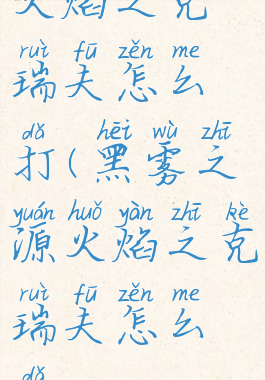 火焰之克
ruì fū zěn me
瑞夫怎么
dǎ hēi wù zhī
打(黑雾之
yuán huǒ yàn zhī kè
源火焰之克
ruì fū zěn me
瑞夫怎么
dǎ